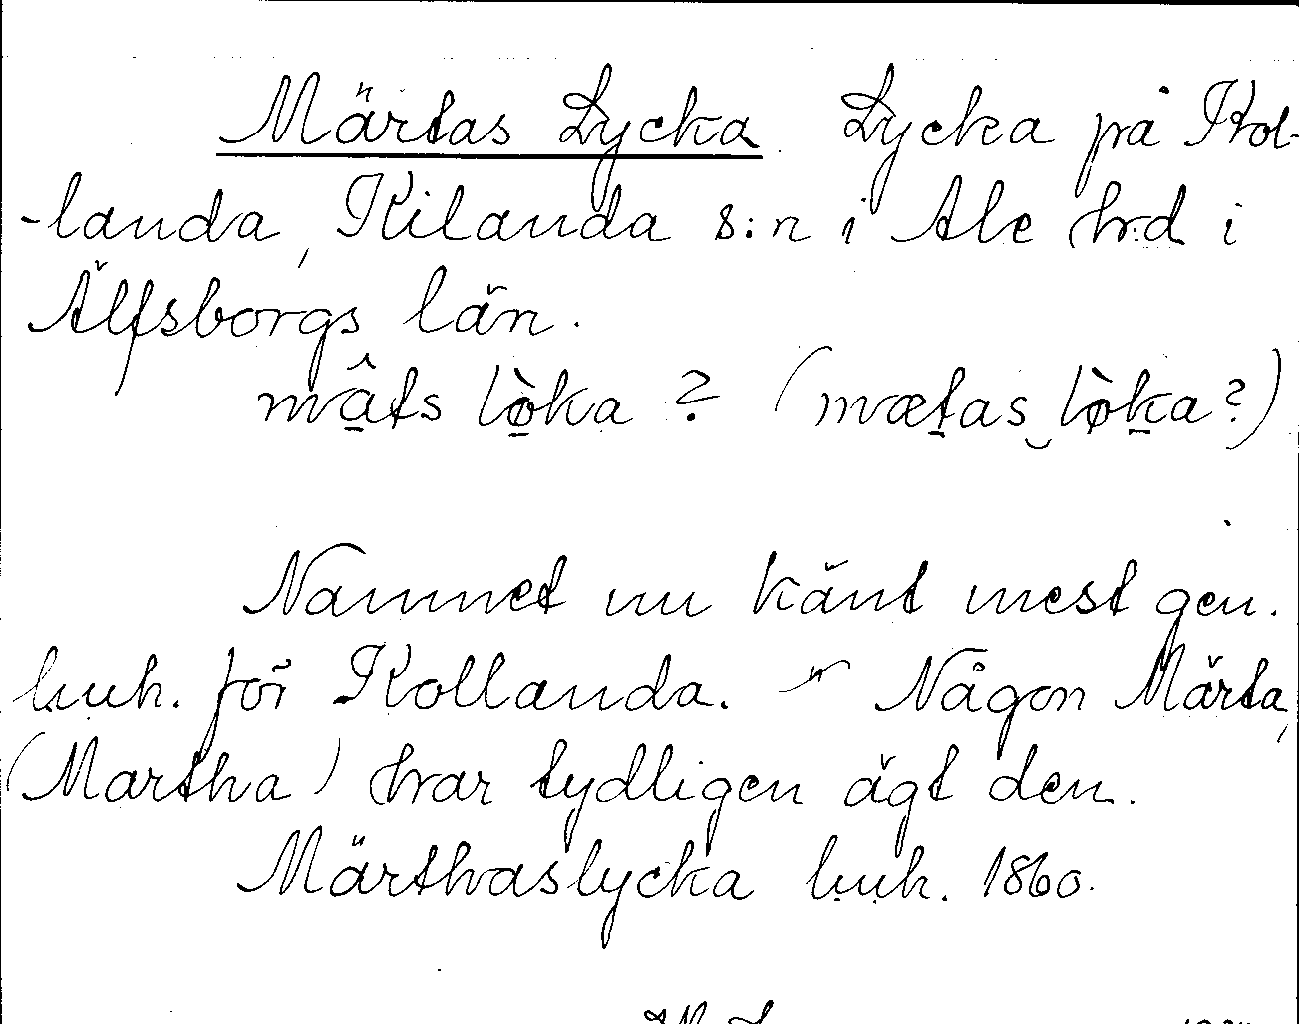 Märtas Lycka Lycka på Kol-
-landa, Kilanda s:n i Ale hrd i
Älfsborgs län.
mâ̱ts lò̱ka? (mæṯas‿lø̀ḵa?)
Namnet nu känt mest gen.
huh. för Kollanda. Någon Märta,
(Martha) har tydligen ägt den.
Märthaslycka huh. 1860.